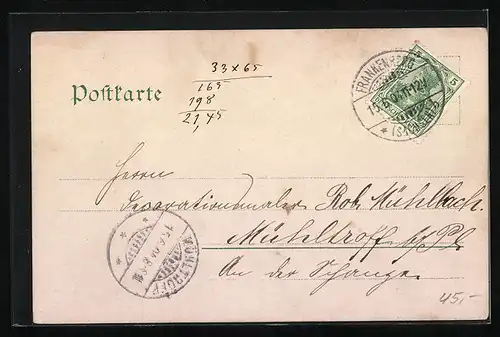 33 x 65
165
198
21,45
Postkarte
FRANKENBERG
(SACHSEN)
5
Herrn
Decorationsmaler Rob. Mühlbach.
Mühltroff b/Pl
An der Schanze
MÜHLTROFF
45,-